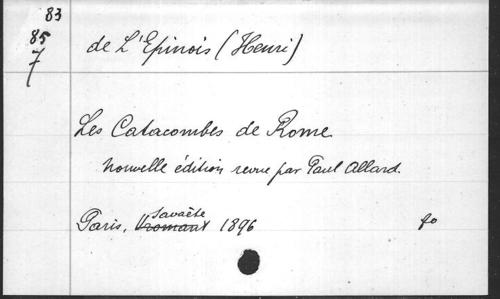 83
85
7
de L'Epinois (Henri)
Les Catacombes de Rome
Nouvelle édition revue par Paul Allard.
Savaète
Paris, Vromant 1896 fo